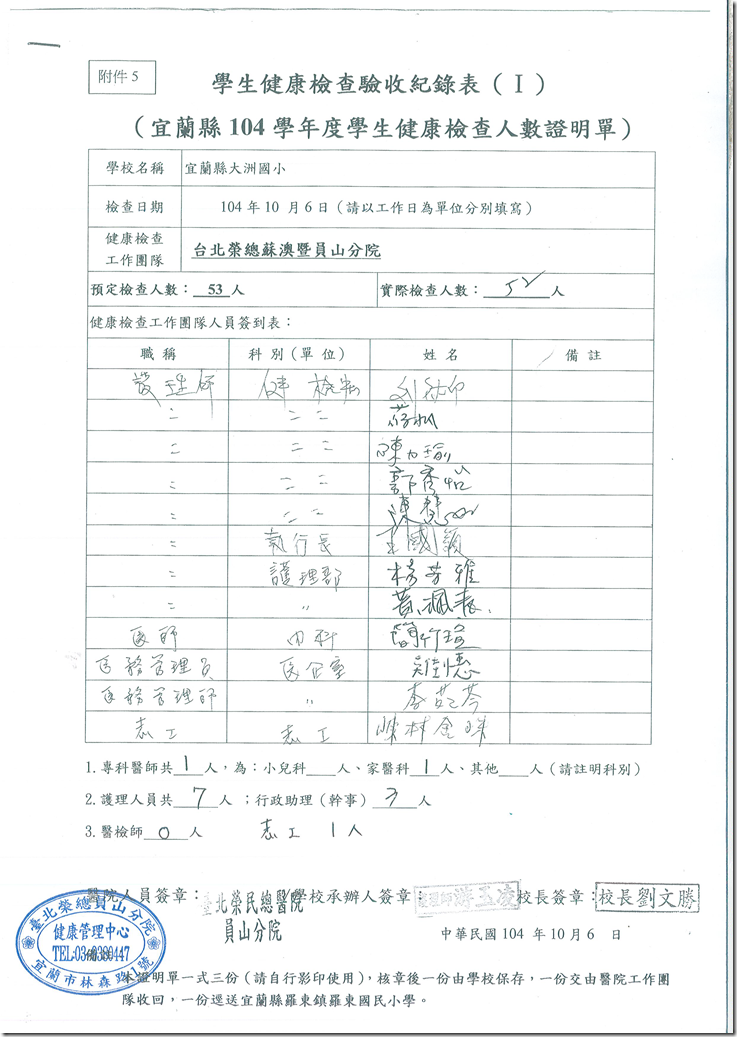 附件 5
學生健康檢查驗收紀錄表（Ⅰ）
（宜蘭縣 104 學年度學生健康檢查人數證明單）
學校名稱 宜蘭縣大洲國小
檢查日期 104 年 10 月 6 日（請以工作日為單位分別填寫）
健康檢查
工作團隊 台北榮總蘇澳暨員山分院
預定檢查人數：53人 實際檢查人數：52人
健康檢查工作團隊人員簽到表：
職稱 科別（單位） 姓名 備註
護理師
〃 〃 〃
〃 〃 〃
〃 〃 〃
〃 〃 〃
〃 執行長 王國穎
〃 護理部 楊芳雅
〃 〃
医師 内科
医務管理員 医企室
医務管理師 〃
志工 志工 陳林金珠
1.專科醫師共1人，為：小兒科___人、家醫科1人、其他___人（請註明科別）
2.護理人員共7人；行政助理（幹事）3人
3.醫檢師0人 志工 1人
醫院人員簽章： 臺北榮民總醫院員山分院 學校承辦人簽章： 護理師游玉凌 校長簽章： 校長劉文勝
中華民國 104 年 10 月 6 日
臺北榮總員山分院
健康管理中心
宜蘭市林森路1號
本證明單一式三份（請自行影印使用），核章後一份由學校保存，一份交由醫院工作團
隊收回，一份逕送宜蘭縣羅東鎮羅東國民小學。